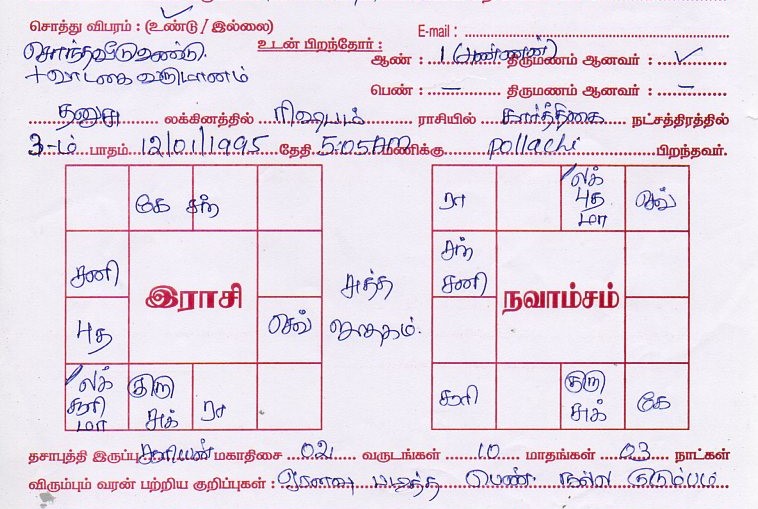 சொத்து விபரம் : (உண்டு / இல்லை) E-mail :
சொந்தவீடு உண்டு. உடன் பிறந்தோர் : ஆண் : 1 (அண்ணன்) திருமணம் ஆனவர் : ✓
+ வாடகை வருமானம்
பெண் : – திருமணம் ஆனவர் : –
தனுசு லக்கினத்தில் ரிஷபம் ராசியில் கார்த்திகை நட்சத்திரத்தில்
3-ம் பாதம் 12/01/1995 தேதி 5:05AM மணிக்கு pollachi பிறந்தவர்.
கே சந்
சனி
இராசி
புத செவ்
லக் சூரி மா குரு சுக் ரா
சுத்த ஜாதகம்.
ரா லக் புத மா செவ்
சந் சனி
நவாம்சம்
சூரி குரு சுக் கே
தசாபுத்தி இருப்பு சூரியன் மகாதிசை 02 வருடங்கள் 10 மாதங்கள் 03 நாட்கள்
விரும்பும் வரன் பற்றிய குறிப்புகள் : ஓரளவு படித்த பெண் நல்ல குடும்பம்